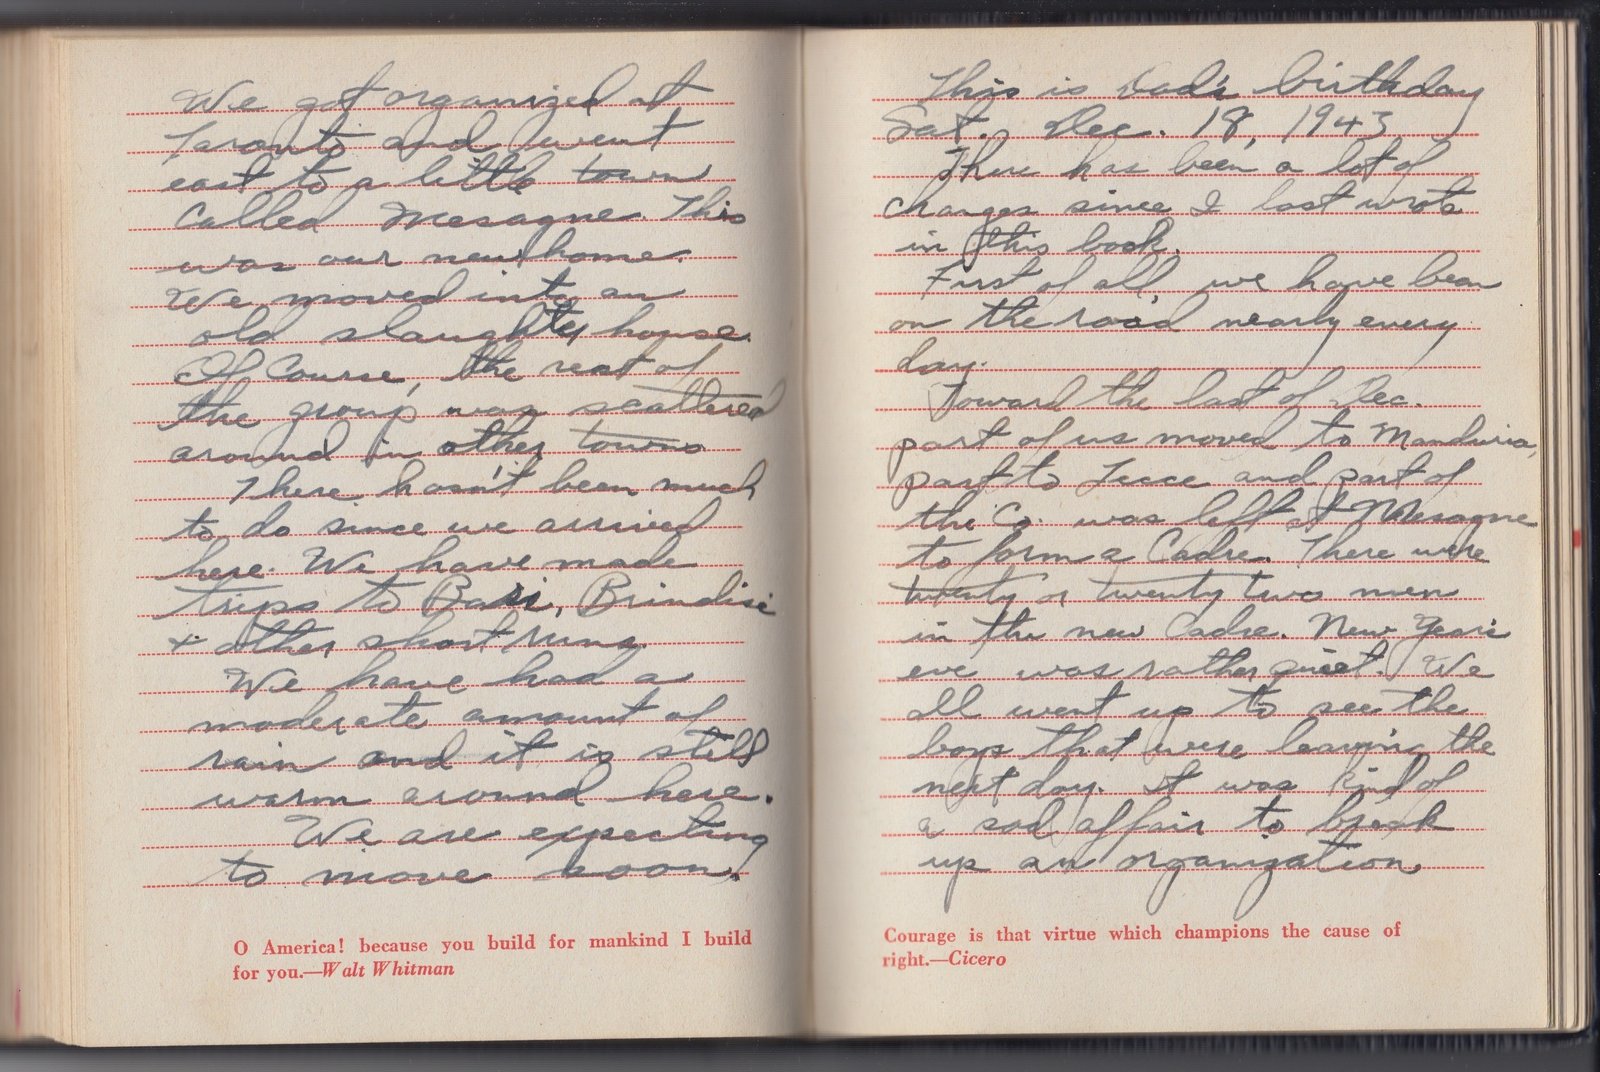 We got organized at
Taranto and went
east to a little town
called Mesagne. This
was our new home.
We moved into an
old slaughter house.
Of Course, the rest of
the group was scattered
around in other towns
There hasn't been much
to do since we arrived
here. We have made
trips to Bari, Brindisi
+ other short runs.
We have had a
moderate amount of
rain and it is still
warm around here.
We are expecting
to move soon.
O America! because you build for mankind I build
for you.—Walt Whitman
This is Dad's birthday
Sat. Dec. 18, 1943
There has been a lot of
changes since I last wrote
in this book.
First of all, we have been
on the road nearly every
day.
Toward the last of Dec.
part of us moved to Manduria,
part to Lecce and part of
the Co. was left at Mesagne
to form a Cadre. There were
twenty or twenty two men
in the new Cadre. New Year's
eve was rather quiet. We
all went up to see the
boys that were leaving the
next day. It was kind of
a sad affair to break
up an organization.
Courage is that virtue which champions the cause of
right.—Cicero